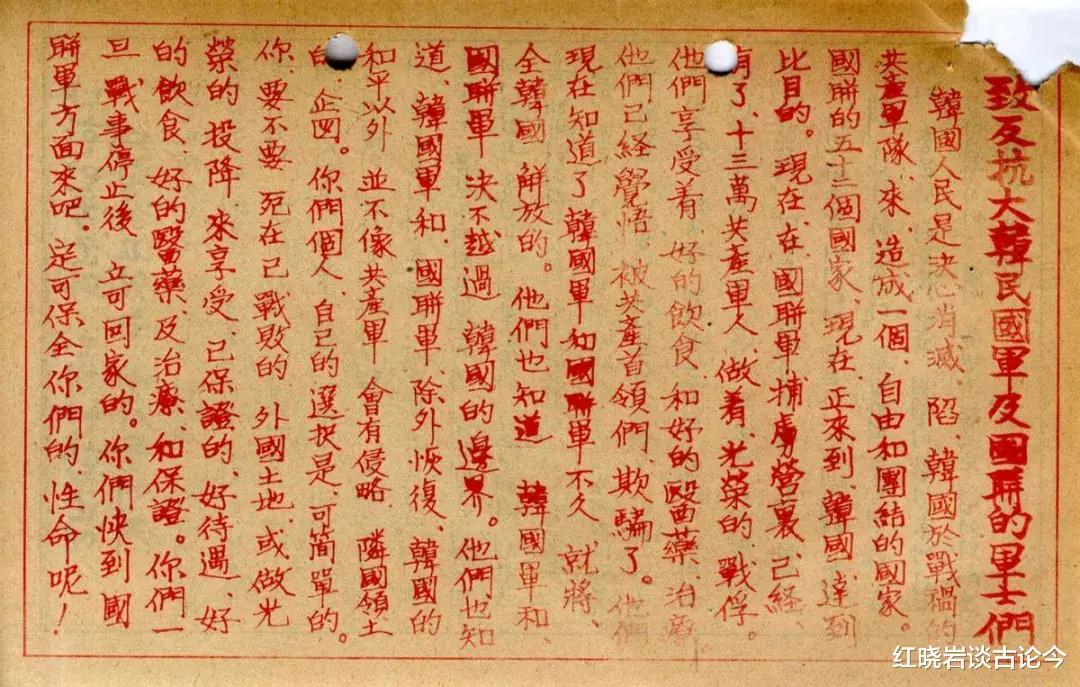 致反抗大韓民國軍及國聯的軍士們
韓國人民是決心消滅、陷、韓國於戰禍的
共產軍隊、來、造成一個、自由和團結的國家。
國聯的五十三個國家、現在、正來到、韓國、達到
比目的。現在、在、國聯軍、捕虜營裏、已經、
有了、十三萬共產軍人、做着、光榮的、戰俘。
他們、享受着、好的飲食、和好的醫藥、治療。
他們已經覺悟、被共產首領們、欺騙了。他們
現在知道了、韓國軍、和國聯軍、不久、就將、
全韓國、解放的。他們也知道、韓國軍和、
國聯軍、決不越過、韓國的邊界。他們也知
道、韓國軍和、國聯軍、除外恢復、韓國的
和平以外、並不像共產軍、會有侵略、隣國領土
的、企図。你們個人、自己的選択是、可簡單的。
你、要不要、死在已戰敗的、外國土地、或做光
榮的、投降、來享受、已保證的、好待遇、好
的飲食、好的醫藥、及治療、和保證。你們一
旦、戰事停止後、立可回家的。你們快到國
聯軍方面來吧。定可保全你們的、性命呢！
红晓岩谈古论今